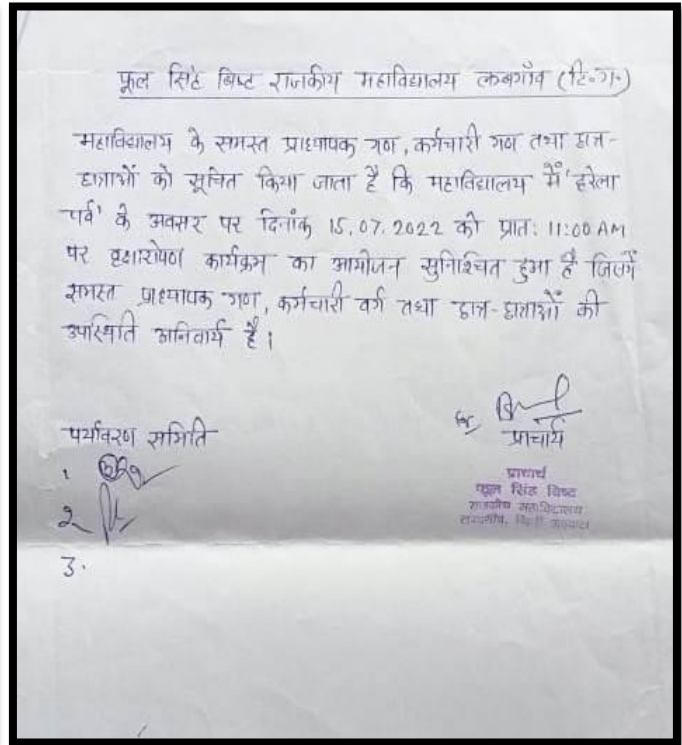 फूल सिंह बिष्ट राजकीय महाविद्यालय लम्बगाँव (टि०ग०)
महाविद्यालय के समस्त प्राध्यापक गण, कर्मचारी गण तथा छात्र-
छात्राओं को सूचित किया जाता है कि महाविद्यालय में 'हरेला
पर्व' के अवसर पर दिनांक 15.07.2022 को प्रात: 11:00 AM
पर वृक्षारोपण कार्यक्रम का आयोजन सुनिश्चित हुआ है जिसमें
समस्त प्राध्यापक गण, कर्मचारी वर्ग तथा छात्र-छात्राओं की
उपस्थिति अनिवार्य है।
पर्यावरण समिति
1
2
3.
प्राचार्य
प्राचार्य
फूल सिंह बिष्ट
राजकीय महाविद्यालय
लम्बगाँव, टिहरी गढ़वाल